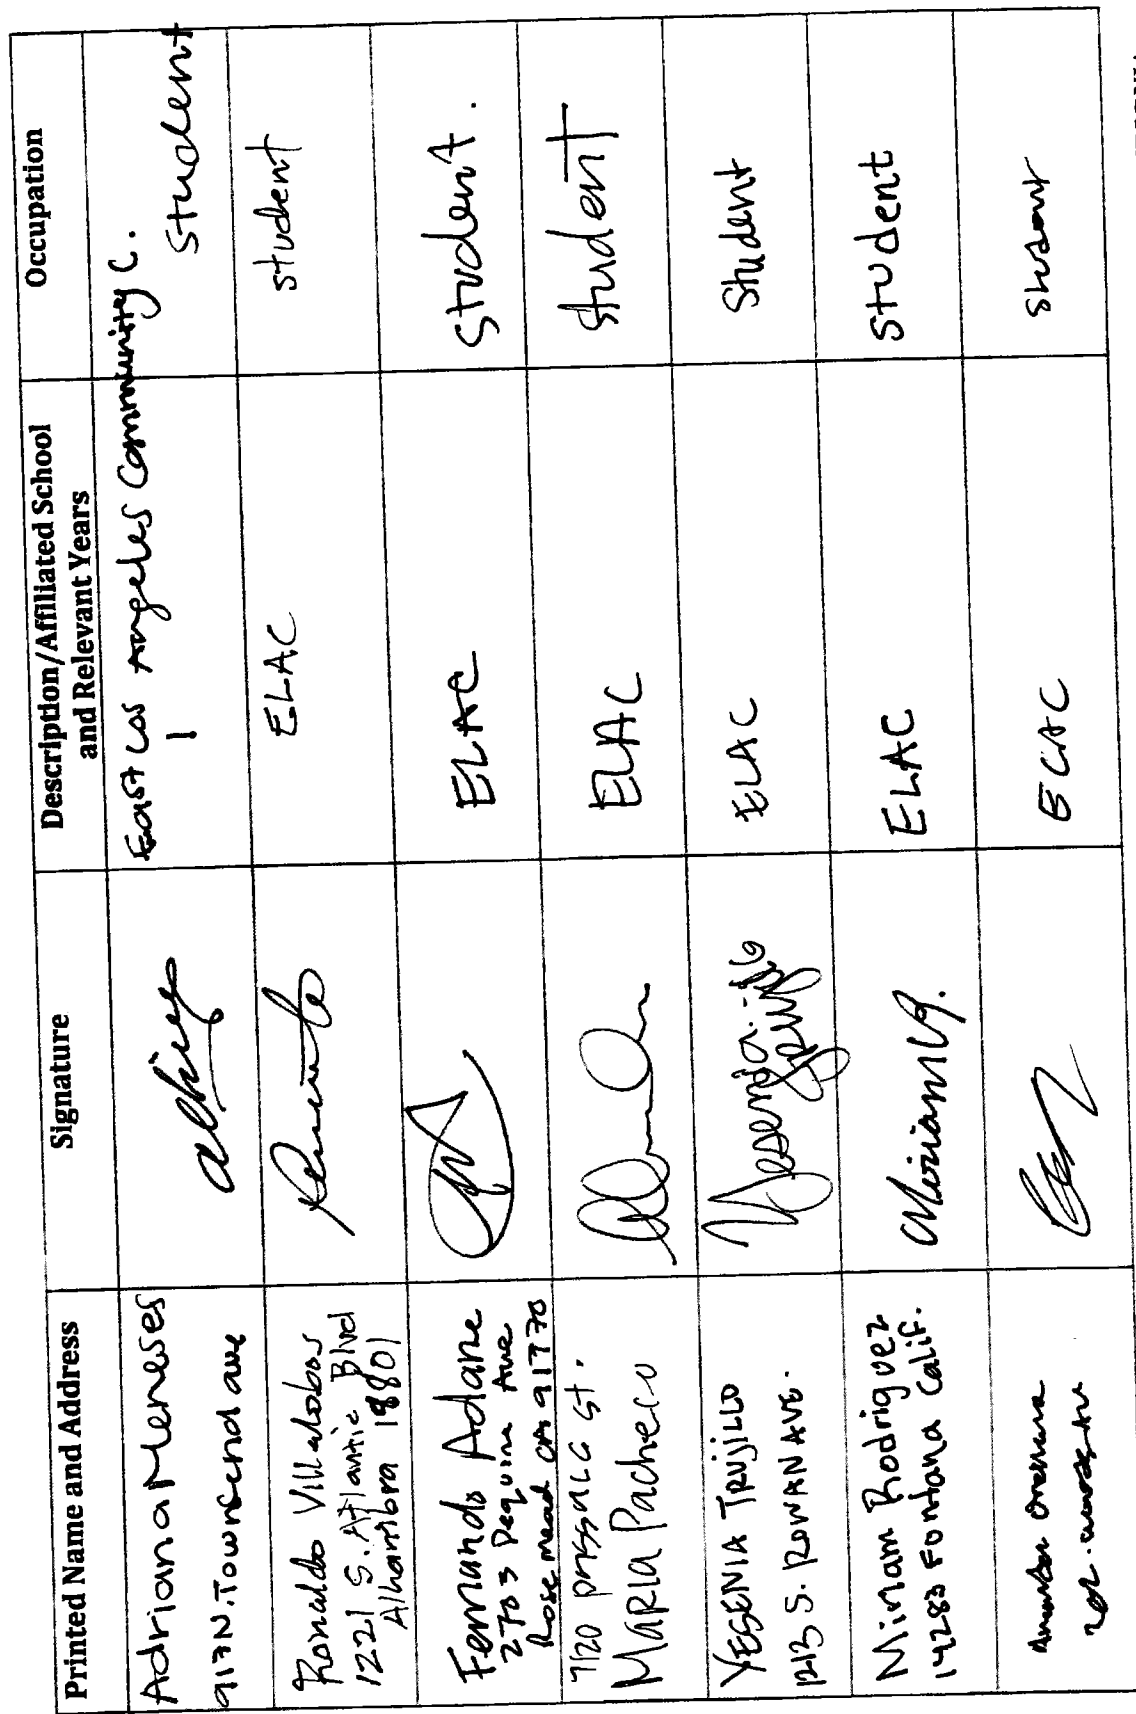 Printed Name and Address
Signature
Description/Affiliated School
and Relevant Years
Occupation
Adriana Meneses
917 N. Townsend ave
East Los Angeles Community C.
1
Student
Ronaldo Villalobos
1221 S. Atlantic Blvd
Alhambra
ELAC
student
Fernando Adame
2703 Ave
Rosemead CA 91770
ELAC
student.
7120 St.
Maria Pacheco
ELAC
student
YESENIA TRUJILLO
1213 S. ROWAN AVE.
ELAC
Student
Miriam Rodriguez
14283 Fontana Calif.
Miriam
ELAC
student
ELAC
student